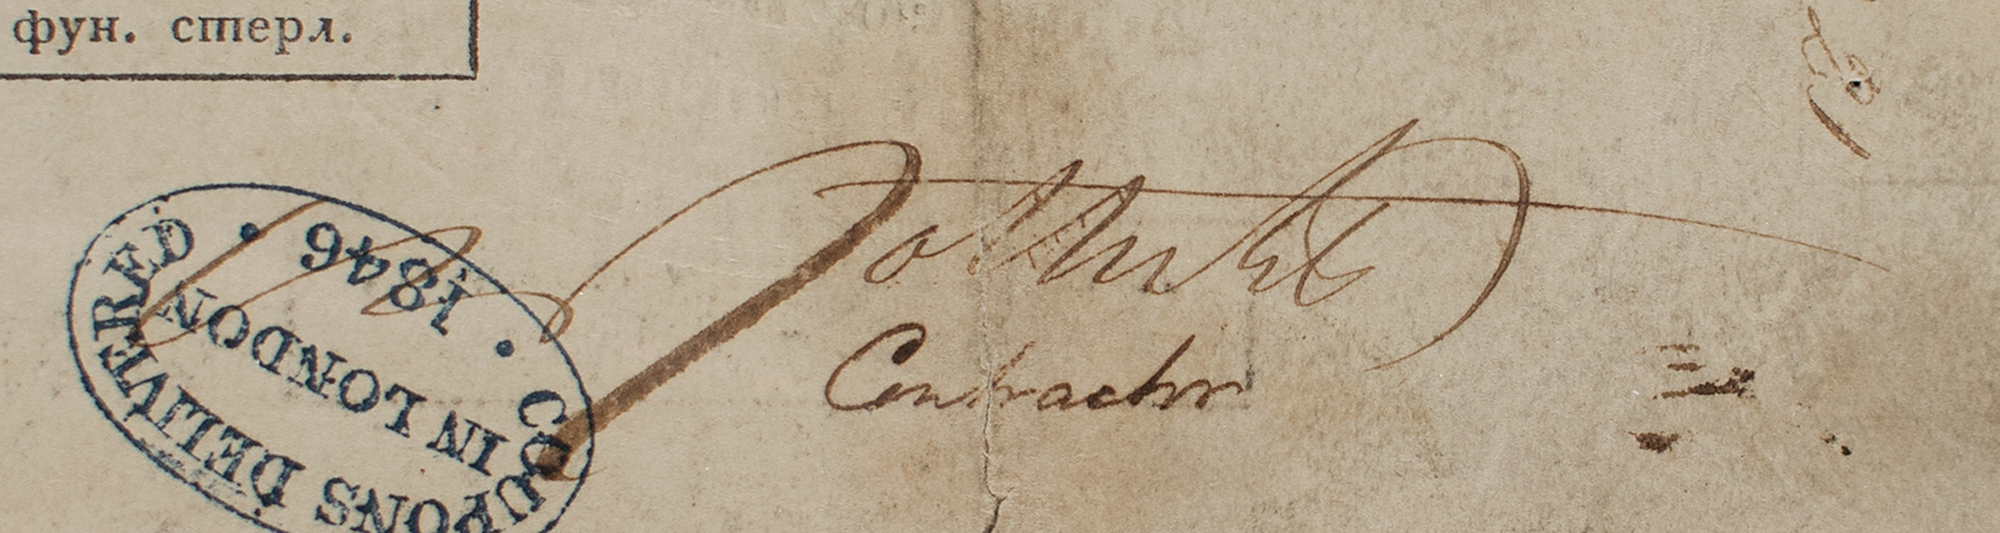 фун. стерл.
COUPONS DELIVERED
IN LONDON
1846
Contractor